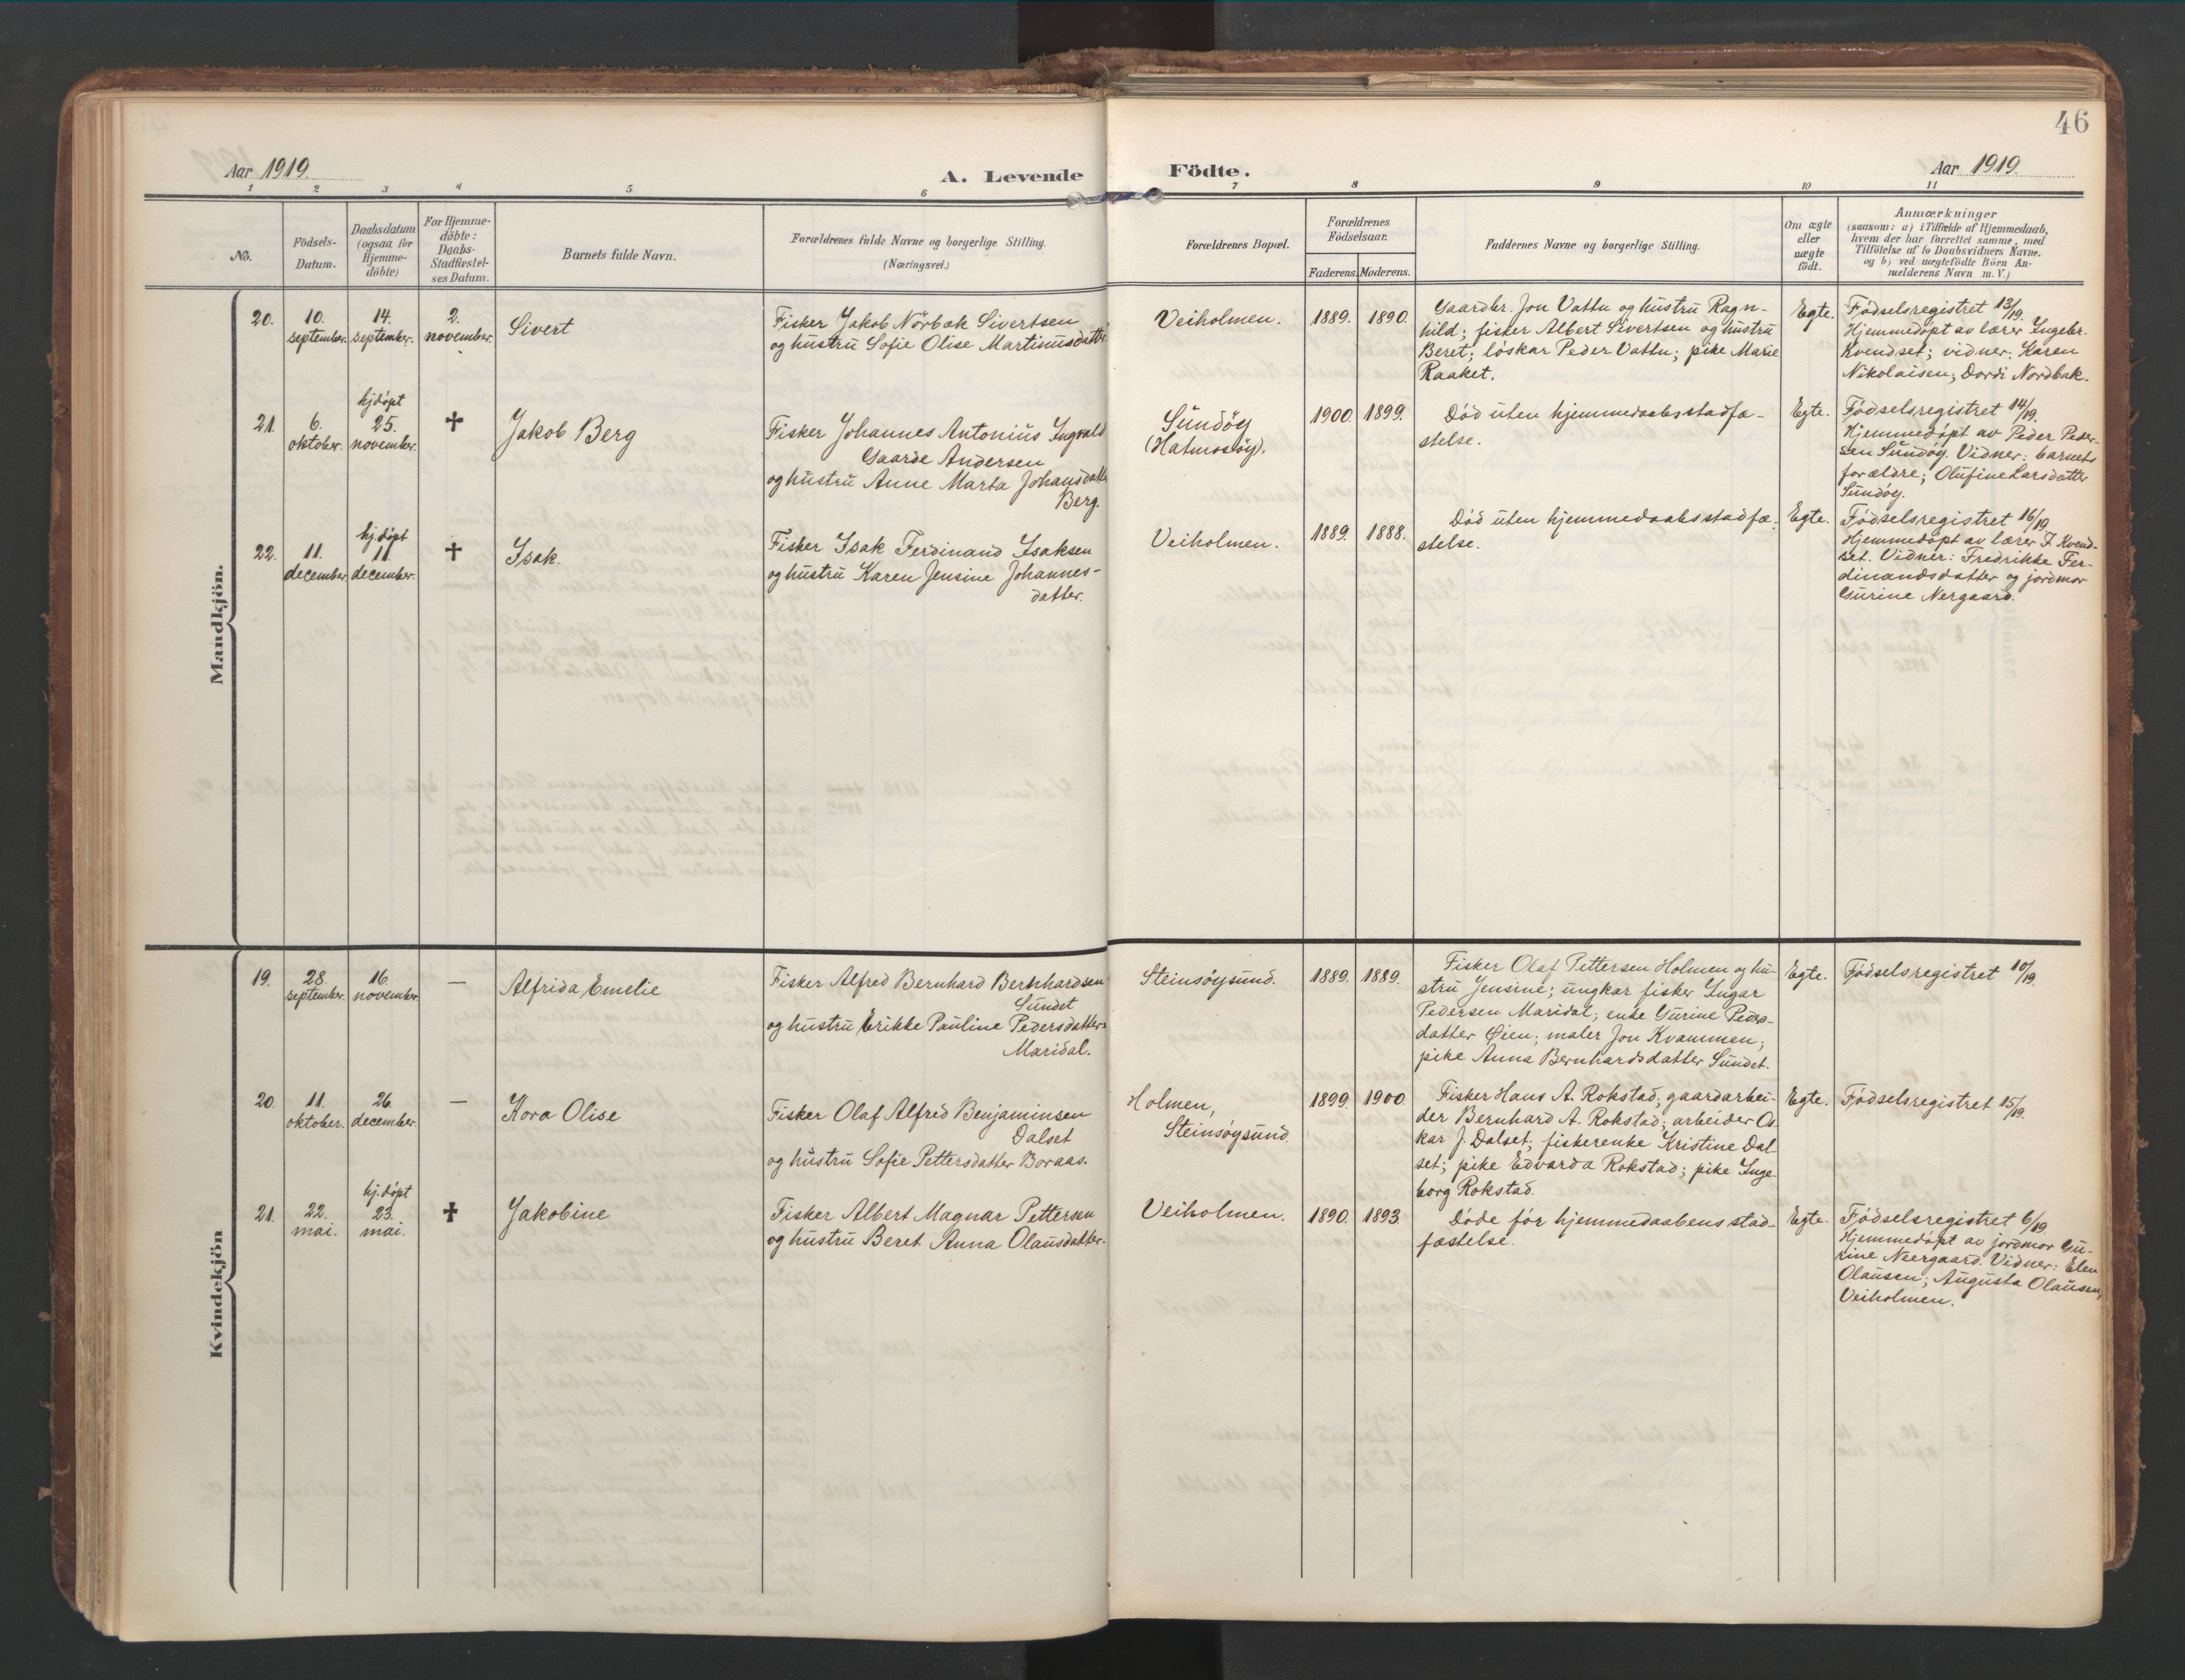 46
Aar 1919.
A. Levende Födte.
Aar 1919.
1 2 3 4 5 6 7 8 9 10 11
No.
Födsels-
Datum.
Daabsdatum
(ogsaa for
Hjemme-
döbte)
For Hjemme-
döbte:
Daabs-
Stadfæstel-
ses Datum.
Barnets fulde Navn.
Forældrenes fulde Navne og borgerlige Stilling.
(Næringsvei.)
Forældrenes Bopæl.
Forældrenes
Födselsaar.
Faderens. Moderens.
Faddernes Navne og borgerlige Stilling.
Om ægte
eller
uægte
födt.
Anmærkninger
(saasom: a) i Tilfælde af Hjemmedaab,
hvem der har forrettet samme, med
Tilföielse af to Daabsvidners Navne.
og b) ved uægtefödte Börn An-
melderens Navn m. V.)
Mandkjön.
20.
10.
september.
14.
september.
2.
november.
Sivert
Fisker Jakob Nörbak Sivertsen
og hustru Sofie Olise Martinusdatter
Veiholmen.
1889. 1890.
Gaardbr. Jon Vattn og hustru Ragn-
hild; fisker Albert Sivertsen og hustru
Beret; löskar Peder Vattn; pike Marie
Raaket.
Egte.
Födselsregistret 13/19.
Hjemmedöpt av lærer Ingebr.
Kvendset; vidner: Karen
Nikolaisen; Dordi Nordbak.
21.
6.
oktober.
hjdöpt
25.
november.
✝
Jakob Berg
Fisker Johannes Antonius Ingvald
Gaarde Andersen
og hustru Anne Marta Johansdatter
Berg.
Sundöy
(Hatmosöy).
1900. 1899.
Död uten hjemmedaabsstadfæ-
stelse.
Egte.
Födselsregistret 14/19.
Hjemmedöpt av Peder Peder-
sen Sundöy. Vidner: barnets
forældre; Olufine Larsdatter
Sundöy.
22.
11.
december.
hj.döpt
11.
december.
✝
Isak.
Fisker Isak Ferdinand Isaksen
og hustru Karen Jensine Johannes-
datter.
Veiholmen.
1889. 1888.
Död uten hjemmedaabsstadfæ-
stelse.
Egte.
Födselsregistret 16/19
Hjemmedöpt av lærer I. Kvend-
set. Vidner: Fredrikke Fer-
dinandsdatter og jordmor
Gurine Nergaard.
Kvindekjön
19.
28.
september.
16.
november
—
Alfrida Emelie
Fisker Alfred Bernhard Bernhardsen
Sundet
og hustru Erikke Pauline Pedersdatter
Maridal.
Steinsöysund.
1889. 1889.
Fisker Olaf Pettersen Holmen og hu-
stru Jensine; ungkar fisker Ingar
Pedersen Maridal; enke Gurine Peders-
datter Øien; maler Jon Kvammen;
pike Anna Bernhardsdatter Sundet.
Egte.
Födselsregistret 10/19.
20.
11.
oktober.
26.
december.
—
Kora Olise
Fisker Olaf Alfred Benjaminsen
Dalset
og hustru Sofie Pettersdatter Boraas.
Holmen,
Steinsöysund.
1899. 1900
Fisker Hans A. Rokstad; gaardarbei-
der Bernhard A. Rokstad; arbeider Os-
kar J. Dalset; fiskerenke Kristine Dal-
set; pike Edvarda Rokstad; pike Inge-
borg Rokstad.
Egte.
Födselsregistret 15/19.
21.
22.
mai.
hj.döpt
23.
mai.
✝
Jakobine
Fisker Albert Magnar Pettersen
og hustru Beret Anna Olausdatter.
Veiholmen.
1890. 1893.
Döde för hjemmedaabens stad-
fæstelse.
Egte.
Födselsregistret 6/19
Hjemmedöpt av jordmor Gu-
rine Neergaard. Vidner: Elen
Olausen; Augusta Olausen,
Veiholmen.